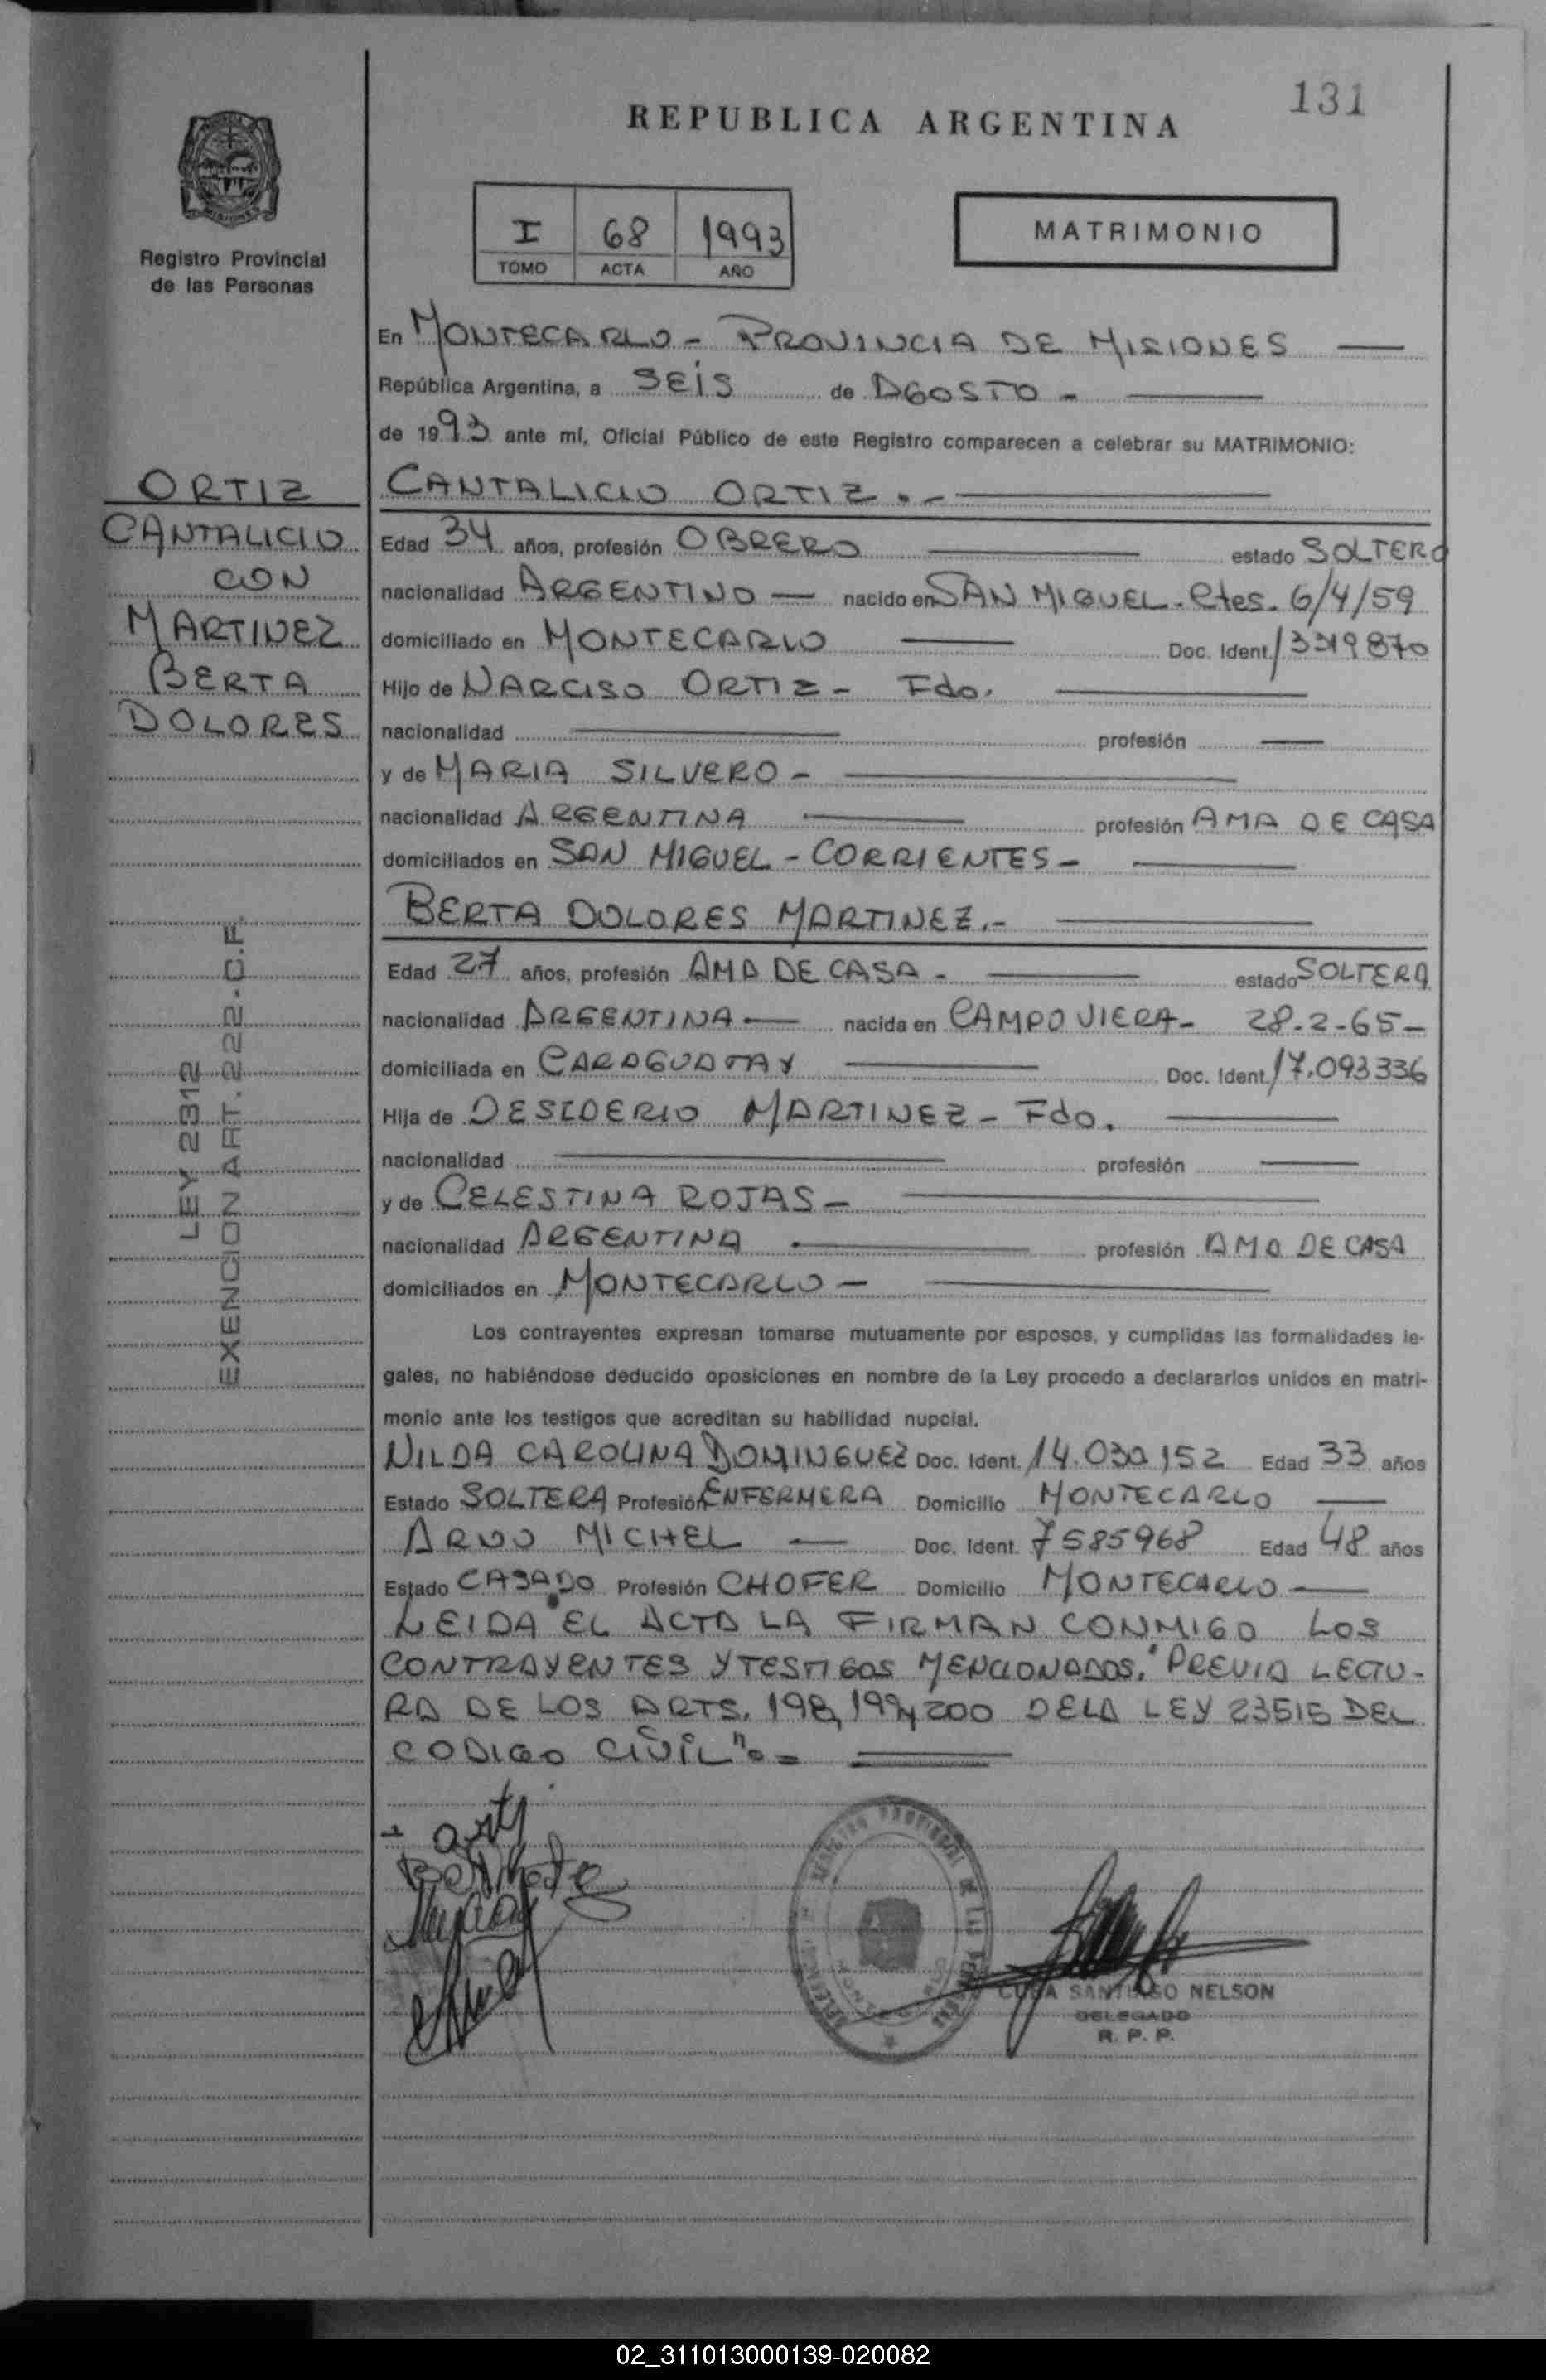 131
REPUBLICA ARGENTINA
Registro Provincial
de las Personas
I 68 1993
TOMO ACTA AÑO
MATRIMONIO
En MONTECARLO - PROVINCIA DE MISIONES
República Argentina, a SEIS de AGOSTO -
de 1993 ante mí, Oficial Público de este Registro comparecen a celebrar su MATRIMONIO:
ORTIZ
CANTALICIO
CON
MARTINEZ
BERTA
DOLORES
LEY 2312
EXENCION ART. 222-C.F.
CANTALICIO ORTIZ.-
Edad 34 años, profesión OBRERO estado SOLTERO
nacionalidad ARGENTINO nacido en SAN MIGUEL - Ctes. 6/4/59
domiciliado en MONTECARLO Doc. Ident. 13319870
Hijo de NARCISO ORTIZ - Fdo.
nacionalidad profesión
y de MARIA SILVERO -
nacionalidad ARGENTINA profesión AMA DE CASA
domiciliados en SAN MIGUEL - CORRIENTES -
BERTA DOLORES MARTINEZ.-
Edad 27 años, profesión AMA DE CASA - estado SOLTERA
nacionalidad ARGENTINA nacida en CAMPO VIERA - 28-2-65-
domiciliada en CARAGUATAY Doc. Ident. 17.093336
Hija de DESIDERIO MARTINEZ - Fdo.
nacionalidad profesión
y de CELESTINA ROJAS -
nacionalidad ARGENTINA profesión AMA DE CASA
domiciliados en MONTECARLO -
Los contrayentes expresan tomarse mutuamente por esposos, y cumplidas las formalidades le-
gales, no habiéndose deducido oposiciones en nombre de la Ley procedo a declararlos unidos en matri-
monio ante los testigos que acreditan su habilidad nupcial.
NILDA CAROLINA DOMINGUEZ Doc. Ident. 14.030.152 Edad 33 años
Estado SOLTERA Profesión ENFERMERA Domicilio MONTECARLO
ARNO MICHEL Doc. Ident. 7585968 Edad 48 años
Estado CASADO Profesión CHOFER Domicilio MONTECARLO -
LEIDA EL ACTA LA FIRMAN CONMIGO LOS
CONTRAYENTES Y TESTIGOS MENCIONADOS. "PREVIA LECTU-
RA DE LOS ARTS. 198, 199 y 200 DE LA LEY 23515 DEL
CODIGO CIVIL".=
SANTIAGO NELSON
DELEGADO
R. P. P.
02_311013000139-020082